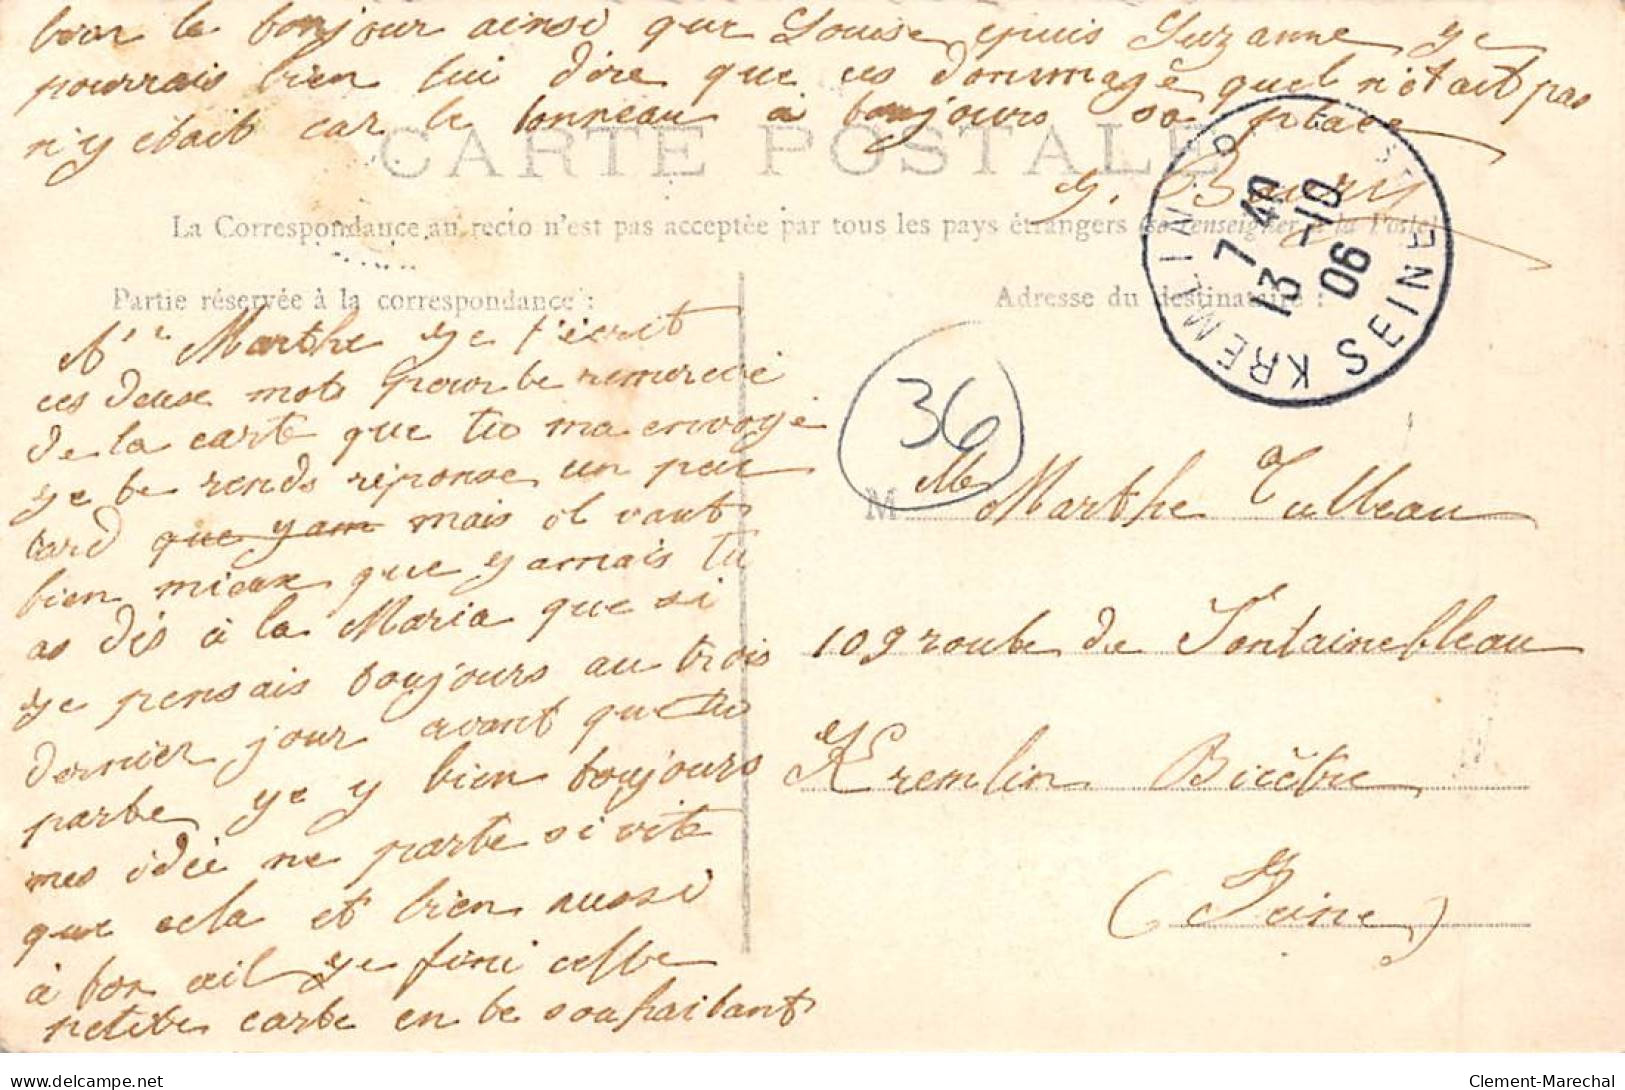 bien le bonjour ainsi que Louise epuis Suzanne je
pourrais bien lui dire que ces dommage quel n'était pas
n'y était car le tonneau à toujours sa place
CARTE POSTALE
La Correspondance au recto n'est pas acceptée par tous les pays étrangers (se renseigner à la Poste)
KREMLIN
7 40
13 -10
06
SEINE
Partie réservée à la correspondance :
Adresse du destinataire :
Marthe je t'écrit
ces deux mots pour te remercié
de la carte que tu ma envoyé
je te rends réponse un peu
tard que jam mais il vaut
bien mieux que jamais tu
as dis à la Maria que si
je pensais toujours au trois
dernier jour avant que tu
parte je y bien toujours
mes idée ne parte si vite
que cela et bien aussi
à bon œil je fini cette
petite carte en te souhaitant
36
M Mlle Marthe Tulleau
109 route de Fontainebleau
Kremlin Bicêtre
(Seine)
Clement-Marechal
delcampe.net